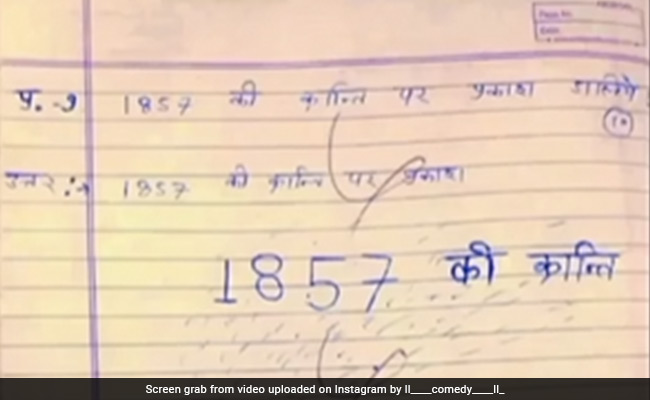 Page No.
Date
प्र. -> 1857 की क्रान्ति पर प्रकाश डालिये
10
उत्तर :-> 1857 की क्रान्ति पर प्रकाश
1857 की क्रान्ति
Screen grab from video uploaded on Instagram by ll____comedy____ll_